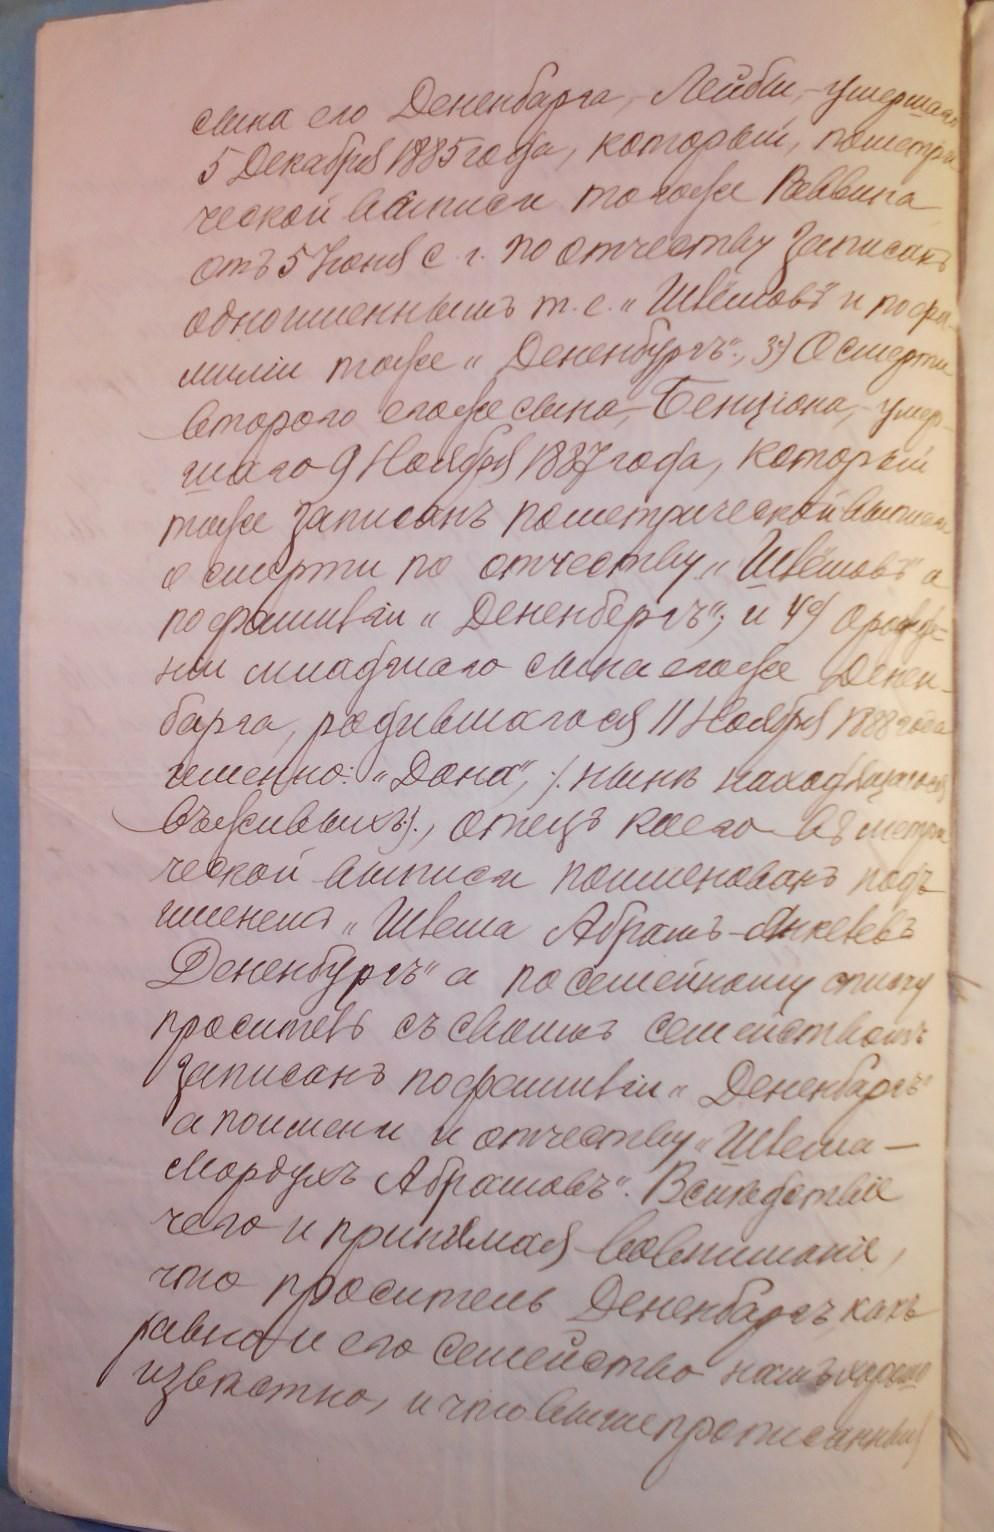 сына его Дененбарга, - Лейбы, - умершаго
5 Декабря 1885 года, который, по метри
ческой выписи тогоже Раввина
отъ 5 Юня с. г. по отчеству записанъ
одноименнымъ т. е. „Швемовъ" и по фа-
милiи тоже „Дененбургъ"; 3) О смерти
второго егоже сына, - Бенцiона, - умер-
шаго 9 Ноября 1887 года, который
тоже записанъ по метрической выписи
о смерти по отчеству „Швемовъ" а
по фамилiи „Дененбергъ"; и 4) О рожде-
нiи младшаго сына егоже Денен-
барга, родившагося 11 Ноября 1888 года
именно: „Дона", /: нынѣ находящагося
въ живыхъ :/, отецъ коего въ метри
ческой выписи поименованъ подъ
именемъ „Швема Абрамъ-Янкелевъ
Дененбургъ" а по семейному списку
проситель съ своимъ семействомъ
записанъ по фамилiи „Дененбаргъ"
а по имени и отчеству „Швема -
Мордухъ Абрамовъ". Вслѣдствiе
чего и принимая во вниманiе,
что проситель Дененбаргъ, какъ
равно и его семейство намъ хорошо
извѣстно, и что вышепрописанный